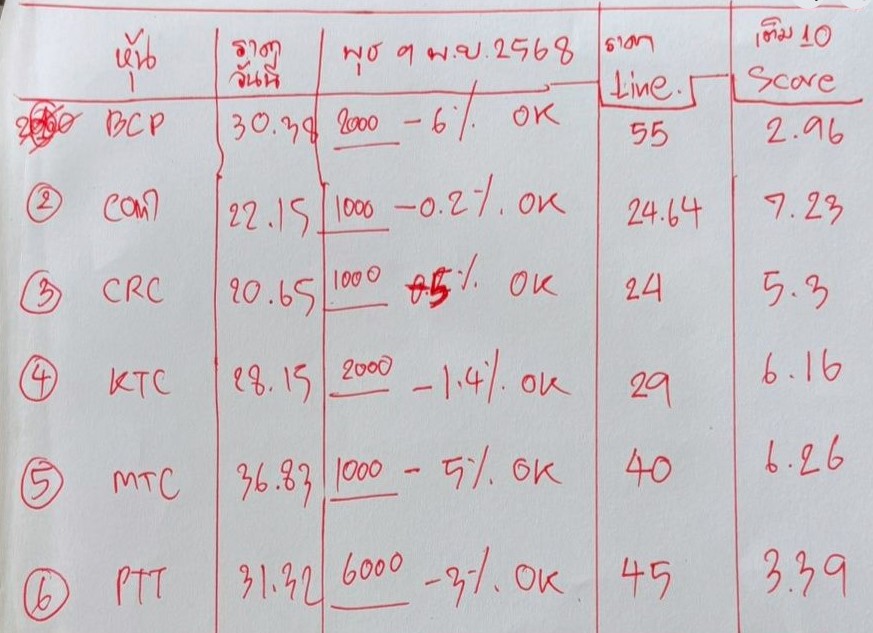 หุ้น ราคา วันนี้ พุธ ๑ พ.ย. 2568 ราคา Line. เต็ม 10 Score
BCP 30.38 2000 -6% OK 55 2.96
② COM7 22.15 1000 -0.2% OK 24.64 7.23
③ CRC 20.65 1000 5% OK 24 5.3
④ KTC 28.15 2000 -1.4% OK 29 6.16
⑤ MTC 36.83 1000 - 5% OK 40 6.26
⑥ PTT 31.32 6000 -3% OK 45 3.39